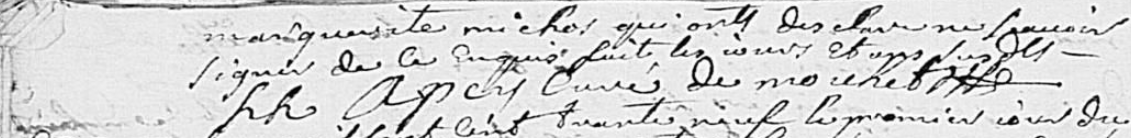 marguerite michos qui ont desclare ne scauoir
signer de ce enquis fait les iours et ans susdit
curé de mouchet
cent trante neuf le premier iour du